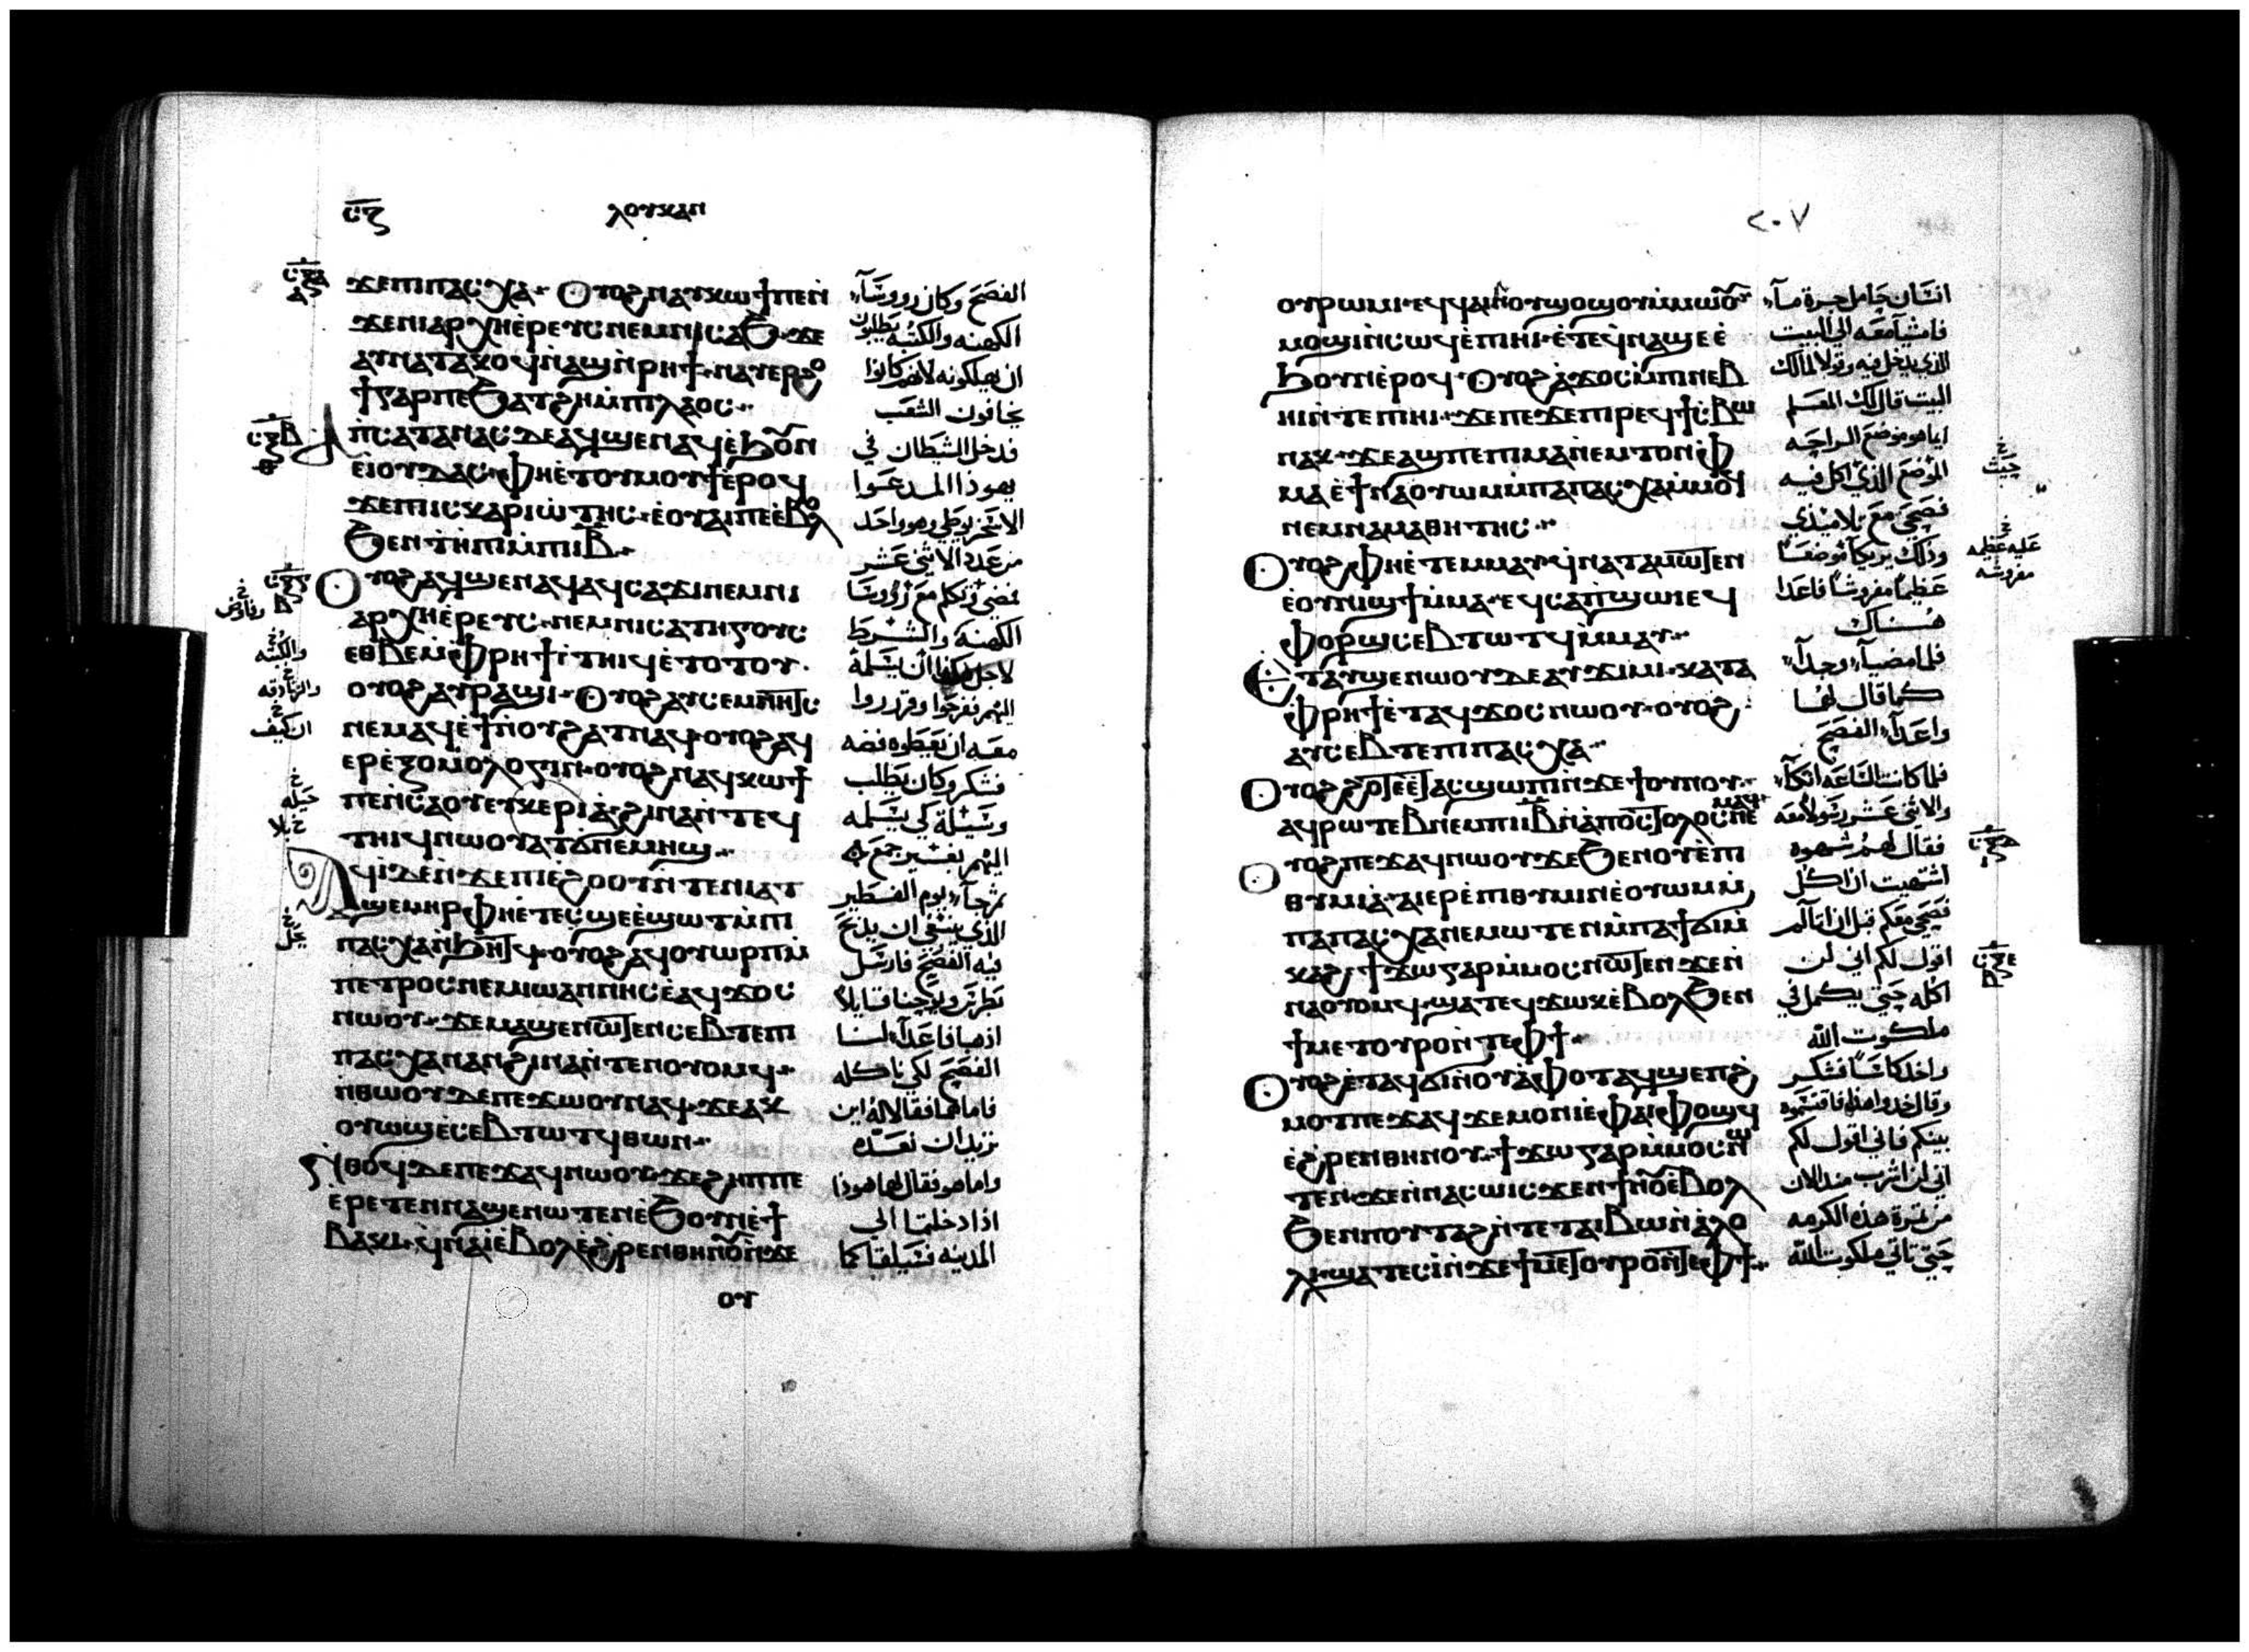 ⲥⲍ
ⲗⲟⲩⲕⲁⲛ
ϫⲉⲡⲓⲡⲁⲥⲭⲁ· Ⲟⲩⲟϩⲛⲁⲩⲕⲱϯⲡⲉⲛ̀
ϫⲉⲛⲓⲁⲣⲭⲏⲉ̀ⲣⲉⲩⲥⲛⲉⲙⲛⲓⲥⲁϧ·ϫⲉ
ⲁⲩⲛⲁⲧⲁⲕⲟϥⲛ̀ⲁϣⲛ̀ⲣⲏϯ·ⲛⲁⲩⲉⲣϩⲟ
ϯⲅⲁⲣⲡⲉϧⲁⲧϩⲏⲙ̀ⲡⲓⲗⲁⲟⲥ·
ⲡ̀ⲥⲁⲧⲁⲛⲁⲥⲇⲉⲁϥϣⲉⲛⲁϥⲉ̀ϧⲟⲩⲛ
ⲉ̀ⲓⲟⲩⲇⲁⲥ·ⲫⲏⲉ̀ⲧⲟⲩⲙⲟⲩϯⲉ̀ⲣⲟϥ
ϫⲉⲡⲓⲥⲕⲁⲣⲓⲱ̀ⲧⲏⲥ·ⲉ̀ⲟⲩⲁⲓⲡⲉⲉ̀ⲃⲟⲗ
ϧⲉⲛⲧ̀ⲏⲡⲓⲙ̀ⲡⲓⲓⲃ·
Ⲟⲩⲟϩⲁϥϣⲉⲛⲁϥⲁϥⲥⲁϫⲓⲛⲉⲙⲛⲓ
ⲁⲣⲭⲏⲉ̀ⲣⲉⲩⲥ·ⲛⲉⲙⲛⲓⲥⲁⲧⲏⲅⲟⲩⲥ
ⲉⲑⲃⲉⲙ̀ⲫⲣⲏϯⲛ̀ⲧⲏⲓϥⲉ̀ⲧⲟⲧⲟⲩ·
ⲟⲩⲟϩⲁⲩⲣⲁϣⲓ·Ⲟⲩⲟϩⲁⲩⲥⲉⲙⲛⲏⲧⲥ
ⲛⲉⲙⲁϥⲉ̀ϯⲛ̀ⲟⲩϩⲁⲧⲛⲁϥ·ⲟⲩⲟϩⲁϥ
ⲉⲣⲉ̀ⲝⲟⲙⲟⲗⲟⲅⲓⲛ·ⲟⲩⲟϩⲛⲁϥⲕⲱϯ
ⲡⲉⲛ̀ⲥⲁⲟⲩⲉⲩⲕⲉⲣⲓⲁ̀·ϩⲓⲛⲁⲛ̀ⲧⲉϥ
ⲧⲏⲓϥⲛⲱⲟⲩⲁⲧϭⲛⲉⲙⲏϣ·
Ⲁϥⲓ̀ⲇⲉⲛ̀ϫⲉⲡⲓⲉ̀ϩⲟⲟⲩⲛ̀ⲧⲉⲛⲓⲁⲧ
ϣⲉⲙⲏⲣ·ⲫⲏⲉ̀ⲧⲉⲥϣⲉⲉ̀ϣⲱⲧⲙ̀ⲡⲓ
ⲡⲁⲥⲭⲁⲛ̀ϧⲏⲧϥ·ⲟⲩⲟϩⲁϥⲟⲩⲱⲣⲡⲙ̀
ⲡⲉⲧⲣⲟⲥⲛⲉⲙⲓⲱⲁⲛⲛⲏⲥⲉ̀ⲁϥϫⲟⲥ
ⲛⲱⲟⲩ·ϫⲉⲙⲁϣⲉⲛⲱⲧⲉⲛⲥⲉⲃⲧⲉⲡⲓ
ⲡⲁⲥⲭⲁⲛⲁⲛϩⲓⲛⲁⲛ̀ⲧⲉⲛⲟⲩⲟⲙϥ·
ⲛ̀ⲑⲱⲟⲩⲇⲉⲡⲉϫⲱⲟⲩⲛⲁϥ·ϫⲉⲁⲕ
ⲟⲩⲱϣⲉ̀ⲥⲉⲃⲧⲱⲧϥⲑⲱⲛ·
Ⲛ̀ⲑⲟϥⲇⲉⲡⲉϫⲁϥⲛⲱⲟⲩ·ϫⲉϩⲏⲡⲡⲉ
ⲉ̀ⲣⲉⲧⲉⲛⲛⲁϣⲉⲛⲱⲧⲉⲛⲉ̀ϧⲟⲩⲛⲉ̀ϯ
ⲃⲁⲕⲓ·ϥ̀ⲛⲁⲓ̀ⲉ̀ⲃⲟⲗⲉ̀ϩⲣⲉⲛⲑⲏⲛⲟⲩⲛ̀ϫⲉ
ⲟⲩ
الفصح وكان رووسآء
الكهنه والكتبه يطلبون
ان يهلكونه لانهم كانوا
يخافون الشعب
فدخل الشيطان في
يهوذا المدعوا
الاسخريوطي وهو واحد
من عدد الاثني عشر
فمضي وتكلم مع رؤوسا
الكهنة والشرط
لاجل هكذا ان يسلمه
اليهم ففرحوا وقرروا
معه ان يعطوه فضه
فشكر وكان يطلب
وسيلة لكي يسلمه
اليهم بغير جمع
ثم جآء يوم الفطير
الذي ينبغي ان يذبح
فيه الفصح فارسل
بطرس ويوحنا قايلا
اذهبا فاعدآ لنا
الفصح لكي ناكله
فاما هما فقالا له اين
تريد ان نعده
واما هو فقال لهما هوذا
اذا دخلتما الي
المدينه فسيلقاكما
والكتبه
ان كيف
٢٠٧
ⲟⲩⲣⲱⲙⲓ·ⲉϥϥⲁⲓⲛ̀ⲟⲩϣⲟϣⲟⲩⲙ̀ⲙⲱⲟⲩ
ⲙⲟϣⲓⲛ̀ⲥⲱϥⲉ̀ⲡⲓⲏⲓ·ⲉ̀ⲧⲉϥⲛⲁϣⲉⲉ̀
ϧⲟⲩⲛⲉ̀ⲣⲟϥ·Ⲟⲩⲟϩⲁ̀ϫⲟⲥⲙ̀ⲡⲛⲉⲃ
ⲏⲓⲛ̀ⲧⲉⲡⲓⲏⲓ·ϫⲉⲡⲉϫⲉⲡⲓⲣⲉϥϯⲥ̀ⲃⲱ
ⲛⲁⲕ·ϫⲉⲁϣⲡⲉⲡⲓⲙⲁⲛ̀ⲉⲙⲧⲟⲛⲫ
ⲙⲁⲉ̀ϯⲛⲁⲟⲩⲱⲙⲙ̀ⲡⲁⲡⲁⲥⲭⲁⲙ̀ⲙⲟϥ
ⲛⲉⲙⲛⲁⲙⲁⲑⲏⲧⲏⲥ·
Ⲟⲩⲟϩⲫⲏⲉ̀ⲧⲉⲙⲙⲁⲩϥⲛⲁⲧⲁⲙⲱⲧⲉⲛ
ⲉ̀ⲟⲩⲛⲓϣϯⲙ̀ⲙⲁ·ⲉϥⲥⲁⲡϣⲱⲓⲉϥ
ⲫⲟⲣϣⲥⲉⲃⲧⲱⲧϥⲙ̀ⲙⲁⲩ·
Ⲉ̀ⲧⲁⲩϣⲉⲛⲱⲟⲩⲇⲉⲁⲩϫⲓⲙⲓ·ⲕⲁⲧⲁ
ⲫⲣⲏϯⲉ̀ⲧⲁϥϫⲟⲥⲛⲱⲟⲩ·ⲟⲩⲟϩ
ⲁⲩⲥⲉⲃⲧⲉⲡⲓⲡⲁⲥⲭⲁ·
Ⲟⲩⲟϩϩⲟⲧⲉⲉ̀ⲧⲁⲥϣⲱⲡⲓⲛ̀ϫⲉϯⲟⲩⲛⲟⲩ·
ⲁϥⲣⲱⲧⲉⲃⲛⲉⲙⲡⲓⲓⲃⲛ̀ⲁⲡⲟⲥⲧⲟⲗⲟⲥⲛⲉ
ⲙⲁϥ·
Ⲟⲩⲟϩⲡⲉϫⲁϥⲛⲱⲟⲩϫⲉϧⲉⲛⲟⲩⲉ̀ⲡⲓ
ⲑⲩⲙⲓⲁ̀·ⲁⲓⲉⲣⲉ̀ⲡⲓⲑⲩⲙⲓⲛⲉ̀ⲟⲩⲱⲙⲙ̀
ⲡⲁⲡⲁⲥⲭⲁⲛⲉⲙⲱⲧⲉⲛⲙ̀ⲡⲁϯϭⲓⲙ̀
ⲕⲁϩ·ϯϫⲱⲅⲁⲣⲙ̀ⲙⲟⲥⲛⲱⲧⲉⲛϫⲉⲛ̀
ⲛⲁⲟⲩⲟⲙϥ·ϣⲁⲧⲉϥϫⲱⲕⲉ̀ⲃⲟⲗϧⲉⲛ
ϯⲙⲉⲧⲟⲩⲣⲟⲛ̀ⲧⲉⲫϯ·
Ⲟⲩⲟϩⲉ̀ⲧⲁϥϭⲓⲛ̀ⲟⲩⲁ̀ⲫⲟⲧⲁϥϣⲉⲡϩ
ⲙⲟⲧⲡⲉϫⲁϥϫⲉⲙⲟⲛⲓⲉ̀ⲫⲁⲓⲫⲟϣϥ
ⲉ̀ϩⲣⲉⲛⲑⲏⲛⲟⲩ·ϯϫⲱⲅⲁⲣⲙ̀ⲙⲟⲥⲛⲱ
ⲧⲉⲛ·ϫⲉⲛ̀ⲛⲁⲥⲱⲓⲥϫⲉⲛϯⲛⲟⲩⲉ̀ⲃⲟⲗ
ϧⲉⲛⲡⲟⲩⲧⲁϩⲛ̀ⲧⲉⲧⲁⲓⲃⲱⲛ̀ⲁⲗⲟ
ⲗⲓ·ϣⲁⲧⲉⲥⲓ̀ⲛ̀ϫⲉϯⲙⲉⲧⲟⲩⲣⲟⲛ̀ⲧⲉⲫϯ·
انسان حامل جرة مآء
فامشيا معه الي البيت
الذي يدخل فيه وقولا لمالك
البيت قال لك المعلم
ايما هو موضع الراحه
الموضع الذي اكل فيه
فصحي مع تلاميذي
وذلك يريكما موضعاً
عظيماً مفروشاً فاعدا
هناك
فلما مضيآء وجدآء
كما قال لهما
واعدآء الفصح
فلما كانت الساعه اتكآء
والاثني عشر رسولا معه
فقال لهم شهوه
اشتهيت ان اكل
فصحي معكم قبل ان اتالم
اقول لكم اني لن
اكله حتي يكمل في
ملكوت الله
واخذ كاسًا فشكر
وقال خذوا هذا فاقسموه
بينكم فاني اقول لكم
اني لن اشرب منذ الان
من ثمرة هذه الكرمه
حتي تاتي ملكوت الله
بيت
عليه عظيمه
مفروشه